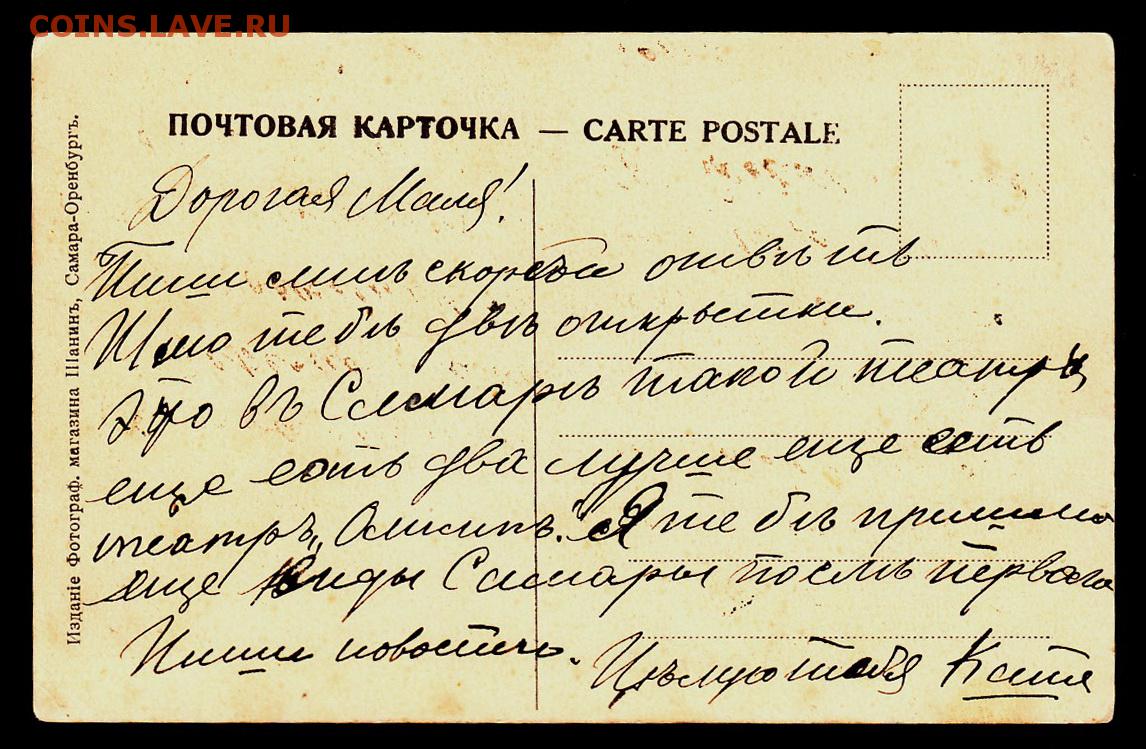 COINS.LAVE.RU
ПОЧТОВАЯ КАРТОЧКА — CARTE POSTALE
Изданіе Фотограф. магазина Шанинъ, Самара-Оренбургъ.
Дорогая Маля!
Пиши мнѣ скорѣй отвѣтъ
Шлю тебѣ двѣ открытки.
Это въ Самарѣ такой театръ
еще есть два лучше еще есть
театръ „Олимпъ". Я тебѣ пришлю
еще виды Самары послѣ перваго
Пиши новости.
Цѣлую тебя Катя